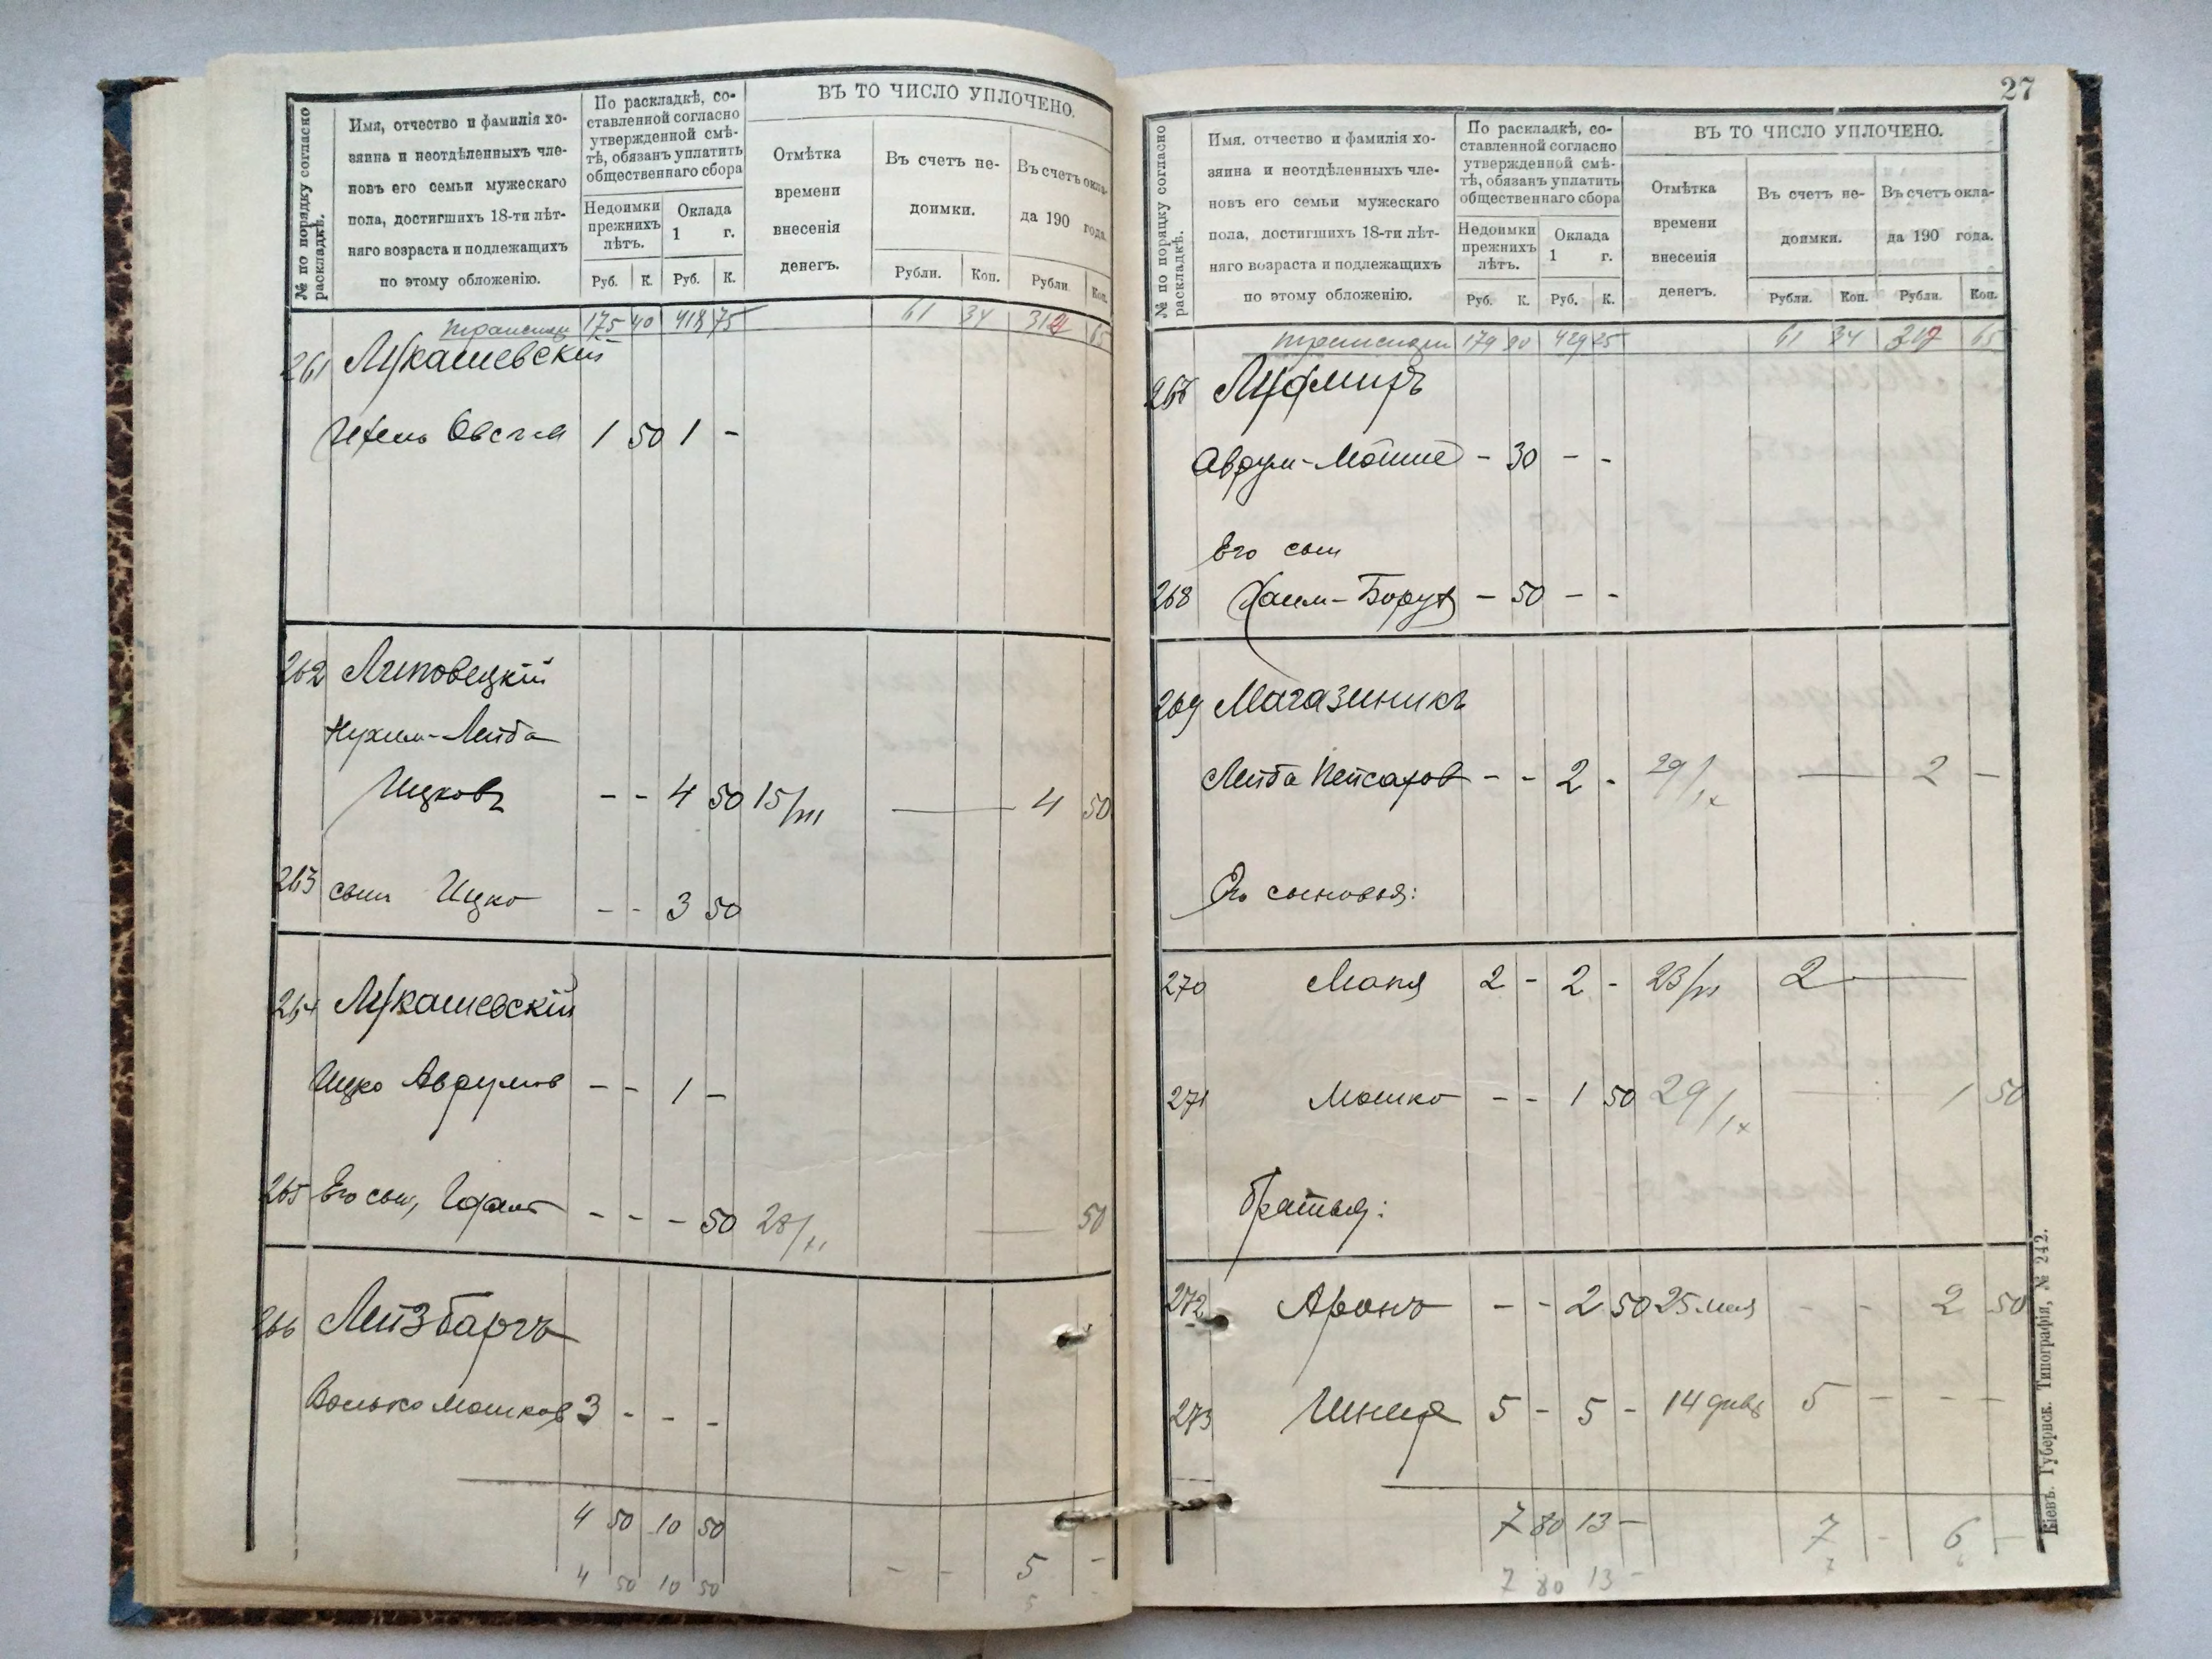 № по порядку согласно раскладкѣ.
Имя, отчество и фамилія хо-
зяина и неотдѣленныхъ чле-
новъ его семьи мужескаго
пола, достигшихъ 18-ти лѣт-
няго возраста и подлежащихъ
по этому обложенію.
По раскладкѣ, со-
ставленной согласно
утвержденной смѣ-
тѣ, обязанъ уплатить
общественнаго сбора
Недоимки
прежнихъ
лѣтъ.
Оклада
1 г.
Руб. К. Руб. К.
ВЪ ТО ЧИСЛО УПЛОЧЕНО.
Отмѣтка
времени
внесенія
денегъ.
Въ счетъ не-
доимки.
Въ счетъ окла-
да 190 года.
Рубли. Коп. Рубли. Коп.
175 40 418 75 61 34 312 65
261 Лукашевскій
1 50 1 -
262 Липовецкій
Нухим-Лейба
Ицковъ - - 4 50 15/VIII — 4 50
263 сын Ицко - - 3 50
264 Лукашевскій
Ицко Аврумов - - 1 -
265 Его сын, - - - 50 28/XI — 50
266 Лейзбаргъ
Волько Мошков 3 - - -
4 50 10 50
- - 5 -
4 50 10 50 5 -
27
№ по порядку согласно раскладкѣ.
Имя, отчество и фамилія хо-
зяина и неотдѣленныхъ чле-
новъ его семьи мужескаго
пола, достигшихъ 18-ти лѣт-
няго возраста и подлежащихъ
по этому обложенію.
По раскладкѣ, со-
ставленной согласно
утвержденной смѣ-
тѣ, обязанъ уплатить
общественнаго сбора
Недоимки
прежнихъ
лѣтъ.
Оклада
1 г.
Руб. К. Руб. К.
ВЪ ТО ЧИСЛО УПЛОЧЕНО.
Отмѣтка
времени
внесенія
денегъ.
Въ счетъ не-
доимки.
Въ счетъ окла-
да 190 года.
Рубли. Коп. Рубли. Коп.
179 90 429 25 61 34 317 65
267 Лудмиръ
Аврум-Мойше - 30 - -
Его сын
268 Хаим-Борух - 50 - -
269 Магазиникъ
Лейба Пейсахов - - 2 - 29/IX — 2 —
Его сыновья:
270 Мотя 2 - 2 - 2 —
271 Мошко - - 1 50 29/IX — 1 50
братья:
272 Аронъ - - 2 50 25 мая - - 2 50
273 5 - 5 - 14 5 - - -
7 80 13 — 7 - 6 —
7 80 13 - 7 6
Кіевъ. Губернск. Типографія, № 242.